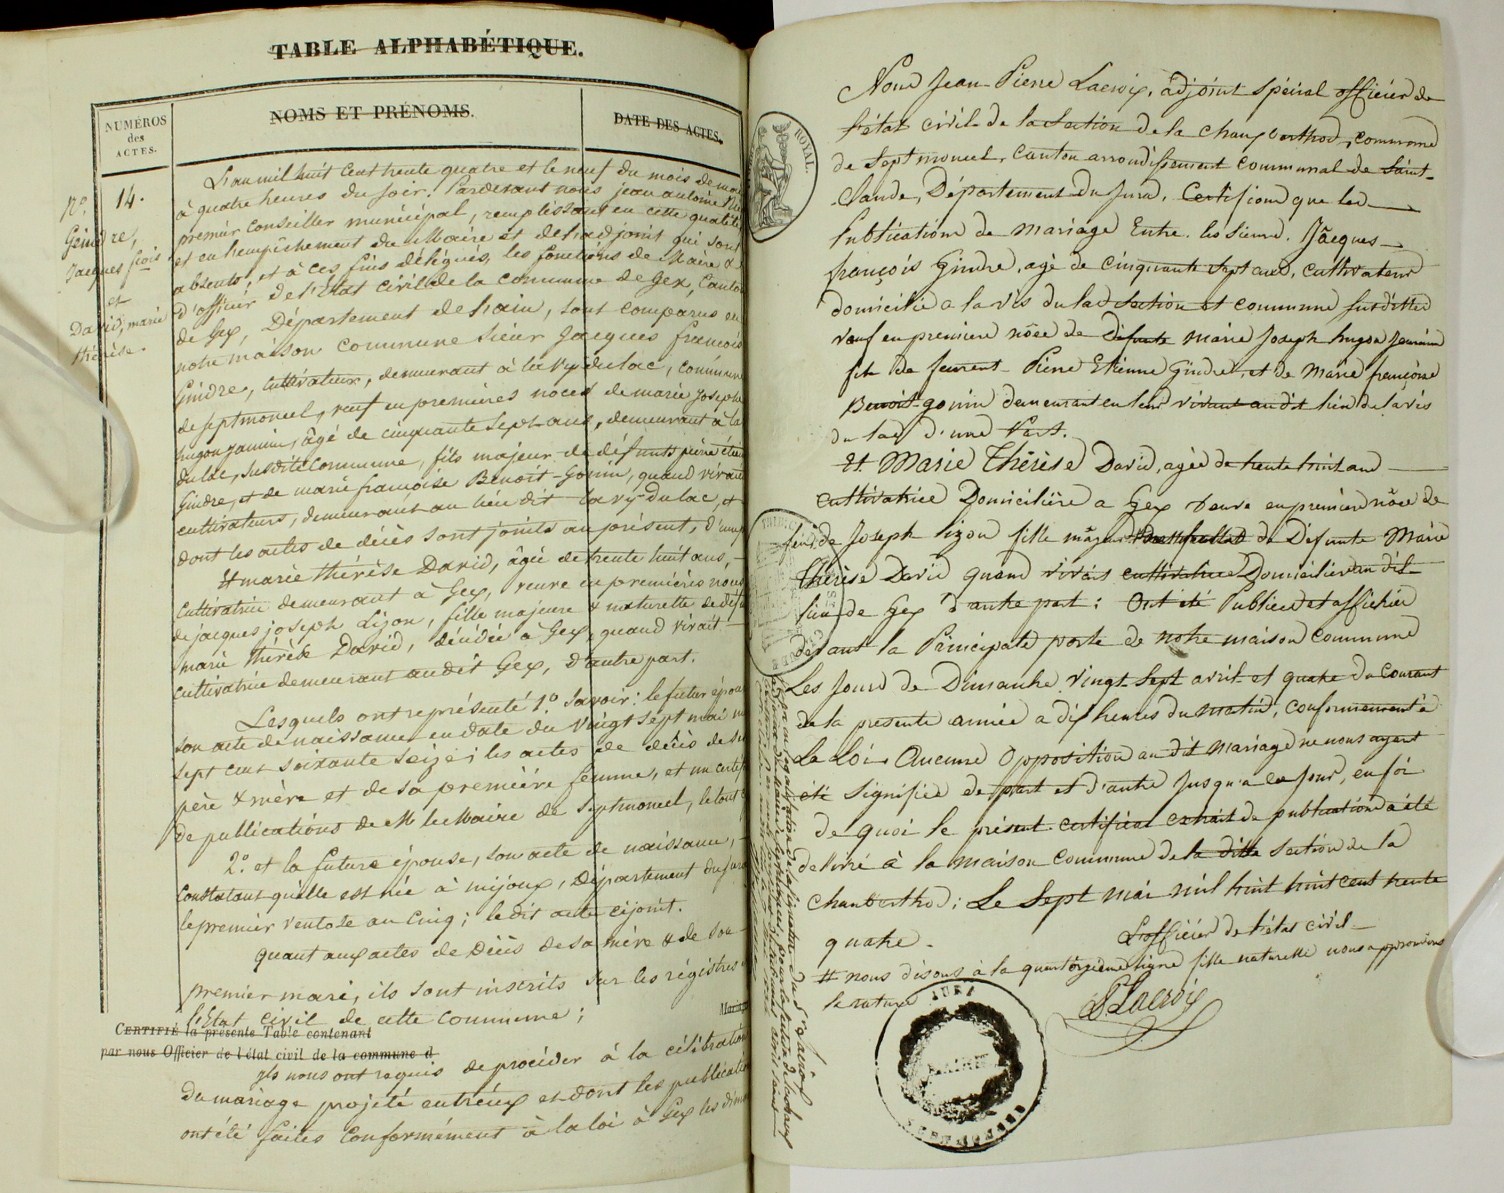 TABLE ALPHABÉTIQUE.
NUMÉROS
des
ACTES.
NOMS ET PRÉNOMS.
DATE DES ACTES.
N.o 14.
Geindre,
Jacques frois
et
David, marie
thérèse.
L'an mil huit cent trente quatre et le neuf du mois de mai
à quatre heures du soir. Pardevant nous jean antoine
premier conseiller municipal, remplissant en cette qualité
et en l'empêchement du Maire et de l'adjoint qui sont
absents, et à ces fins délégué, les fonctions de Maire &
d'officier de l'Etat civil de la commune de Gex, Canton
de Gex, Département de l'ain, sont comparus en
notre maison commune sieur Jacques françois
Gindre, cultivateur, demeurant à la Vy du lac, commune
de septmoncel, veuf en premières noces de marie joseph
hugon jannin, âgé de cinquante sept ans, demeurant à la
du lac, susdite Commune, fils majeur de défunts pierre étienne
Gindre, et de marie françoise Benoit-Gonin, quand vivaient
cultivateurs, demeurant au lieu dit la vy du lac, et
dont les actes de décès sont joints au présent, d'une part
Et marie thérèse David, âgée de trente huit ans,
cultivatrice demeurant à Gex, veuve en premières noces
de jacques joseph Lizon, fille majeure & naturelle de défunte
marie thérèse David, décédée à Gex, quand vivait
cultivatrice demeurant au dit Gex, d'autre part.
Lesquels ont représenté 1.o Savoir: le futur époux
son acte de naissance en date du vingt sept mai mil
sept cent soixante seize; les actes de décès de ses
père & mère et de sa première femme, et un certificat
de publications de M le Maire de Septmoncel, le tout
2.o et la future épouse, son acte de naissance,
constatant qu'elle est née à mijoux, Département du jura
le premier ventose an cinq; ledit acte cijoint.
quant aux actes de Décès de sa mère & de son
premier mari, ils sont inscrits sur les régistres de
l'Etat civil de cette commune;
CERTIFIÉ la présente Table contenant
par nous Officier de l'état civil de la commune d
ils nous ont requis de procéder à la célébration
du mariage projeté entr'eux et dont les publications
ont été faites conformément à la loi à Gex les dimanches
Nous Jean-Pierre Lacroix, adjoint spécial officier de
l'état civil de la Section de la Chaux berthod, commune
de Septmoncel, canton arrondissement communal de Saint-
Claude, Département du Jura, Certifions que les
Publications de mariage Entre les sieurs Jacques
françois Gindre, agé de cinquante sept ans, cultivateur
domicilié a la vis du lac Section et commune susdittes
veuf en premiere nôce de défunte marie Joseph hugon Jannin
fils de feurent Pierre Etienne Gindre, et de Marie françoise
Benoit-gonin demeurant en leur vivant au dit lieu de la vis
du lac d'une Part.
Et Marie Thérèse David, agée de trente huit ans
cultivatrice Domicilière a Gex veuve en première nôce de
feu de Joseph lizon fille majeur de Défunte Marie
thérèse David quand vivait cultivatrice Domicilière au dit
lieu de Gex d'autre part: Ont été Publiées et affichés
devant la Principale porte de notre maison commune
Les Jours de Dimanche vingt-sept avril et quatre du courant
de la presente année a dix heures du matin, conformement à
La Loi. Aucune Opposition au dit mariage ne nous ayant
été signifiée de part et d'autre Jusqu'a ce jour, en foi
de quoi le présent certificat extrait de publication a été
delivré à la maison commune de la ditte section de la
Chaux berthod; Le Sept mai mil huit huit cent trente
quatre.
L'officier de l'état civil
# nous disons à la quatorzieme ligne fille naturelle nous approuvons
la rature
Lacroix
JURA
MAIRIE
ROYAL.